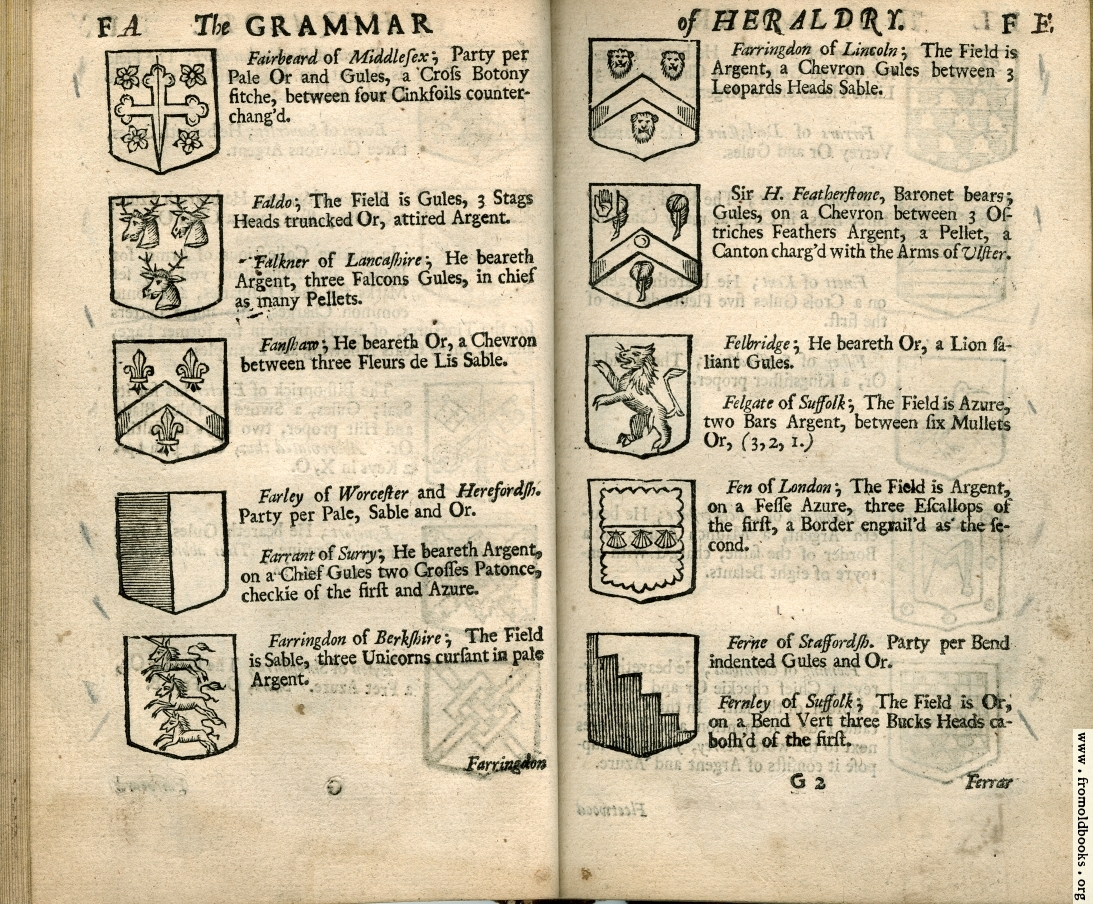 F A The GRAMMAR
Fairbeard of Middleſex; Party per
Pale Or and Gules, a Croſs Botony
fitche, between four Cinkfoils counter-
chang'd.
Faldo; The Field is Gules, 3 Stags
Heads truncked Or, attired Argent.
Falkner of Lancaſhire; He beareth
Argent, three Falcons Gules, in chief
as many Pellets.
Fanſhaw; He beareth Or, a Chevron
between three Fleurs de Lis Sable.
Farley of Worceſter and Herefordſh.
Party per Pale, Sable and Or.
Farrant of Surry; He beareth Argent,
on a Chief Gules two Croſſes Patonce,
checkie of the firſt and Azure.
Farringdon of Berkſhire; The Field
is Sable, three Unicorns curſant in pale
Argent.
Farringdon
of HERALDRY. F E.
Farringdon of Lincoln; The Field is
Argent, a Chevron Gules between 3
Leopards Heads Sable.
Sir H. Featherſtone, Baronet bears;
Gules, on a Chevron between 3 Oſ-
triches Feathers Argent, a Pellet, a
Canton charg'd with the Arms of Ulſter.
Felbridge; He beareth Or, a Lion ſa-
liant Gules.
Felgate of Suffolk; The Field is Azure,
two Bars Argent, between ſix Mullets
Or, (3, 2, 1.)
Fen of London; The Field is Argent,
on a Feſſe Azure, three Eſcallops of
the firſt, a Border engrail'd as the ſe-
cond.
Ferne of Staffordſh. Party per Bend
indented Gules and Or.
Fernley of Suffolk; The Field is Or,
on a Bend Vert three Bucks Heads ca-
boſh'd of the firſt.
G 2 Ferrar
www.fromoldbooks.org